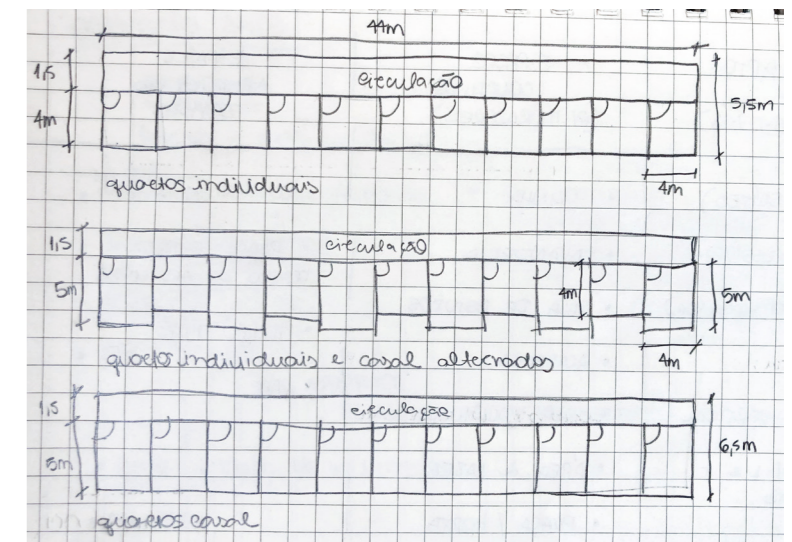 44m
1,5
circulação
4m
5,5m
4m
quartos individuais
1,5
circulação
5m
4m
5m
4m
quartos individuais e casal alternados
1,5
circulação
5m
6,5m
quartos casal